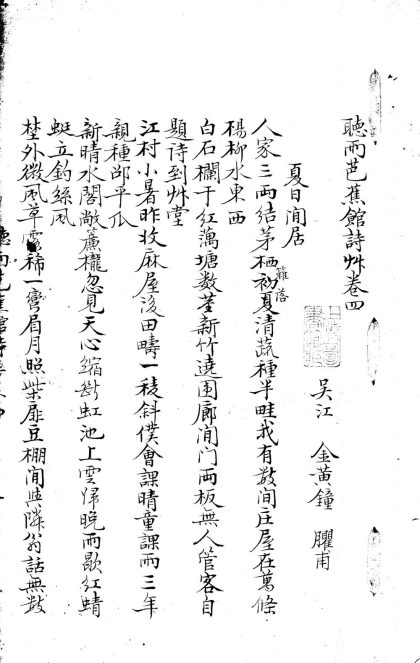 聽雨芭蕉館詩艸卷四
吳江 金黃鐘 臞甫
夏日閒居
人家三兩結茅栖初夏清蔬種半畦我有數間庄屋在萬條
籬落
楊柳水東西
白石欄干红藕塘数茎新竹遶围廊閒门两板無人管客自
題诗到艸堂
江村小暑昨收麻屋後田疇一稜斜僕會課晴童課雨三年
親種邵平瓜
新晴水閣敞薰櫳忽見天心縮斷虹池上雲歸晩雨歇红蜻
蜓立钓絲風
埜外微風草露稀一彎眉月照柴扉豆棚閒與隣翁話無數